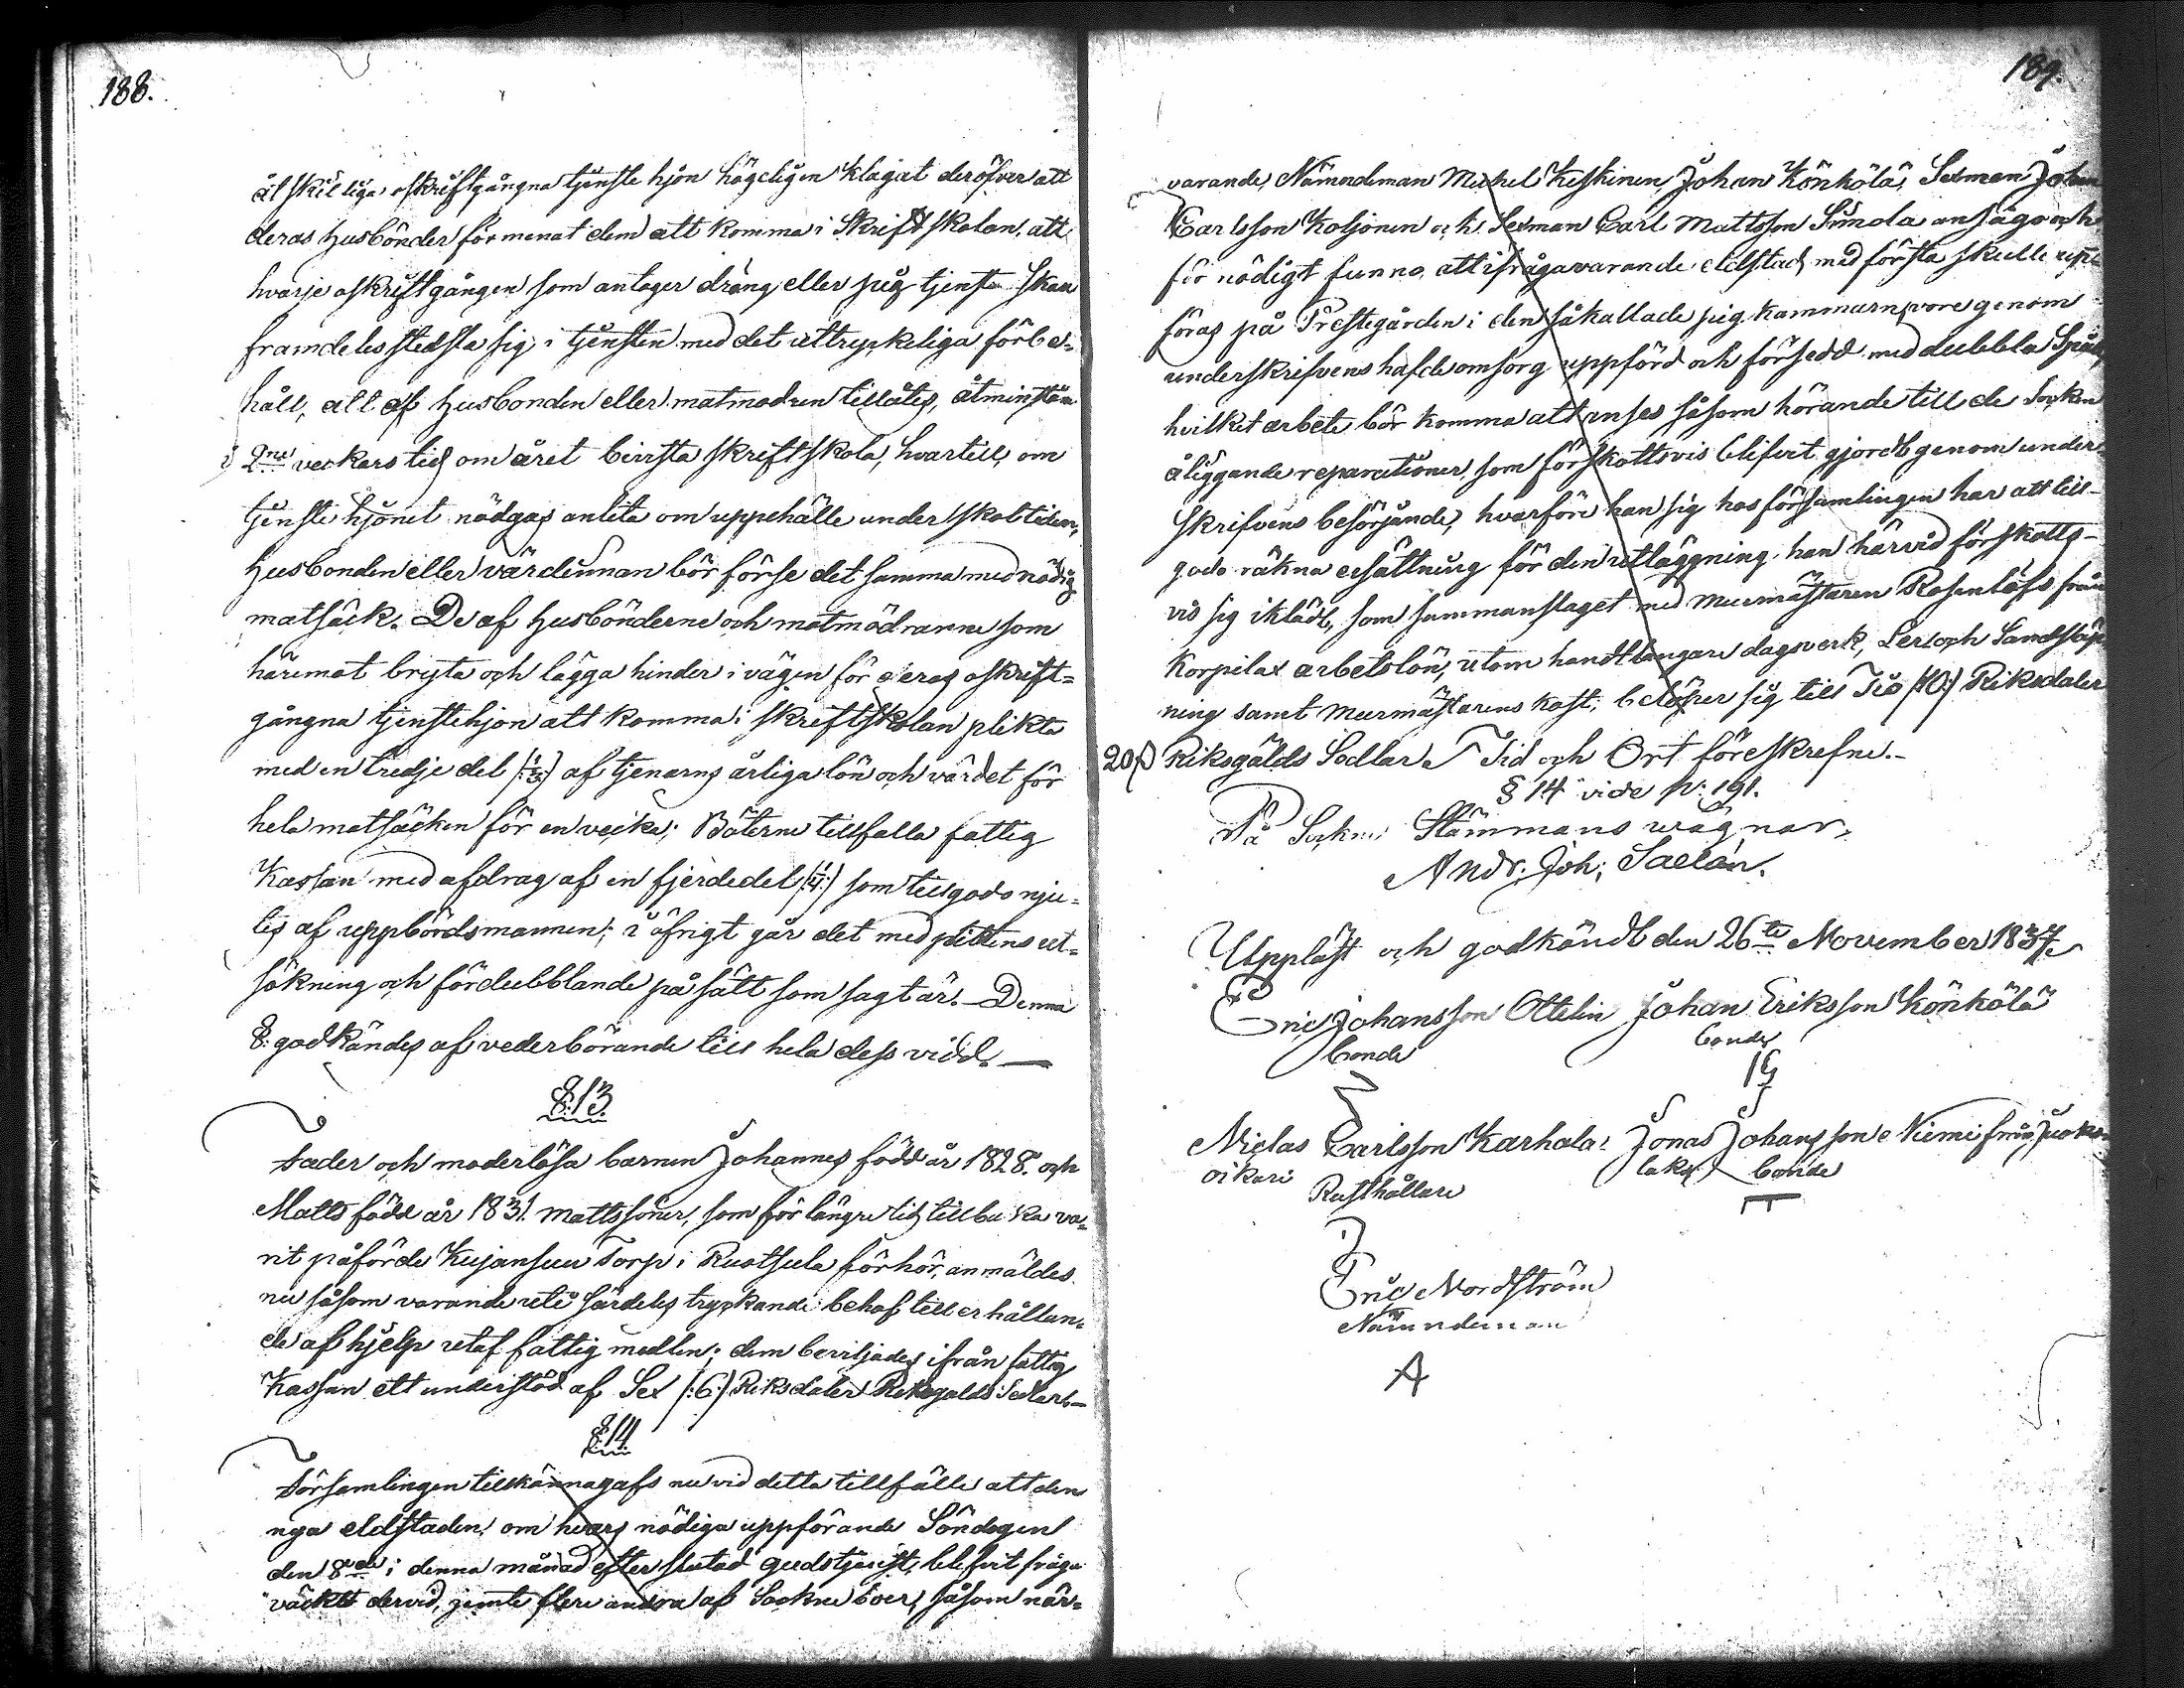 188.
åtskillige oskriftgångna tjenstehjon högeligen klagat deröfver att
deras husbönder förmenat dem att komma i Skriftskolan, att
hvarje oskriftgången som antager dräng eller pig tjenst skall
framdeles stedsla sig i tjensten med det uttryckeliga förbe-
håll, att af husbonden eller matmodren tillåtes, åtminstone
i 2ne veckors tid om året bivista skriftskola, hvartill, om
tjenstehjonet nödgas anlita om uppehälle under skoltiden,
husbonden eller värdinnan bör förse det samma med nödig
matsäck. De af husbönderne och matmödrarne som
häremot bryta och lägga hinder i vägen för deras oskrift-
gångna tjenstehjon att komma i skriftskolan plikta
med en tredje del (:1/3:) af tjenarns årliga lön och värdet för
hela matsäcken för en vecka; Böterne tillfalla fattig
Kassan med afdrag af en fjerdedel (:1/4:) som tillgodo nju-
tes af uppbördsmannen; i öfrigt går det med pliktens ut-
sökning och fördubblande på sätt som sagt är. Denna
§: godkändes af vederbörande till hela dess vidd. —
§.13.
Fader och moderlösa barnen Johannes född år 1828. och
Matts född år 1831. Mattssöner, som för längre tid tillbaka va-
rit påförde Kujansuu Torp i Ruotsula förhör, anmäldes
nu såsom varande uti särdeles tryckande behof till erhållan-
de af hjelp utaf fattig medlen; dem beviljades ifrån fattig
Kassan ett understöd af Sex (:6:) Riksdaler Riksgälds Sedlar. —
§.14.
Församlingen tillkännagafs nu vid detta tillfälle att den
nya eldstaden, om hvars nödiga uppförande Söndagen
den 8de i denna månad efter slutad gudstjenst, blifvit fråga
väckt dervid, jemte flere andra af Sockne boer, såsom när-
189.
varande, Nämndeman Michel Keskinen, Johan Könkölä, Sexman Johan
Carlsson Koljonen och Sexman Carl Mattsson Simola ansågo och
för nödigt funno att ifrågavarande eldstad med första skulle upp-
föras på Prestegården i den såkallade pig kammarn, vore genom
underskrifvens hafde omsorg uppförd och försedd med dubbla Spiäll,
hvilket arbete bör komma att anses såsom hörande till de Socken
åliggande reparationer, som förskottsvis blifvit gjordt genom under-
skrifvens besörjande, hvarföre han sig hos församlingen har att till-
godo räkna ersättning för den utläggning han härvid förskotts-
vis sig iklädt, som sammanslaget med murmästaren Rosenlöfs från
Korpilax arbetslön, utom handtlangare dagsverk, Ler och Sandsläp-
ning samt murmästarens kost, belöper sig till Tio (:10:) Riksdaler
20 Riksgälds Sedlar. Tid och Ort föreskrefne. —
§ 14 vide p: 191.
På Sockne Stämmans wägnar.
Andr. Joh: Saelán.
Uppläst och godkändt den 26te November 1837.
Eric Johansson Ottelin Johan Eriksson Könkölä
bonde bonde
Niclas Carlsson Karhola Jonas Johansson Niemi från Juoks
oikari Rusthållare laks bonde
Eric Nordström
Nämndeman